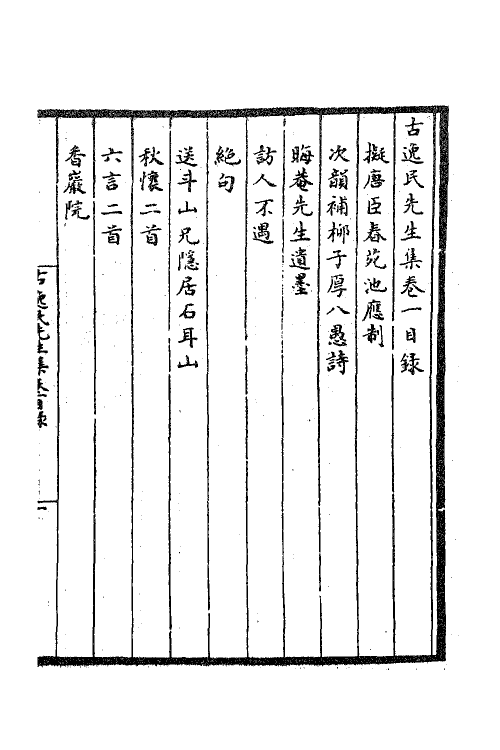 古逸民先生集卷一目錄
擬唐臣春苑池應制
次韻補柳子厚八愚詩
晦菴先生遺墨
訪人不遇
絕句
送斗山兄隱居石耳山
秋懷二首
六言二首
香巖院
古逸民先生集卷一目錄
一